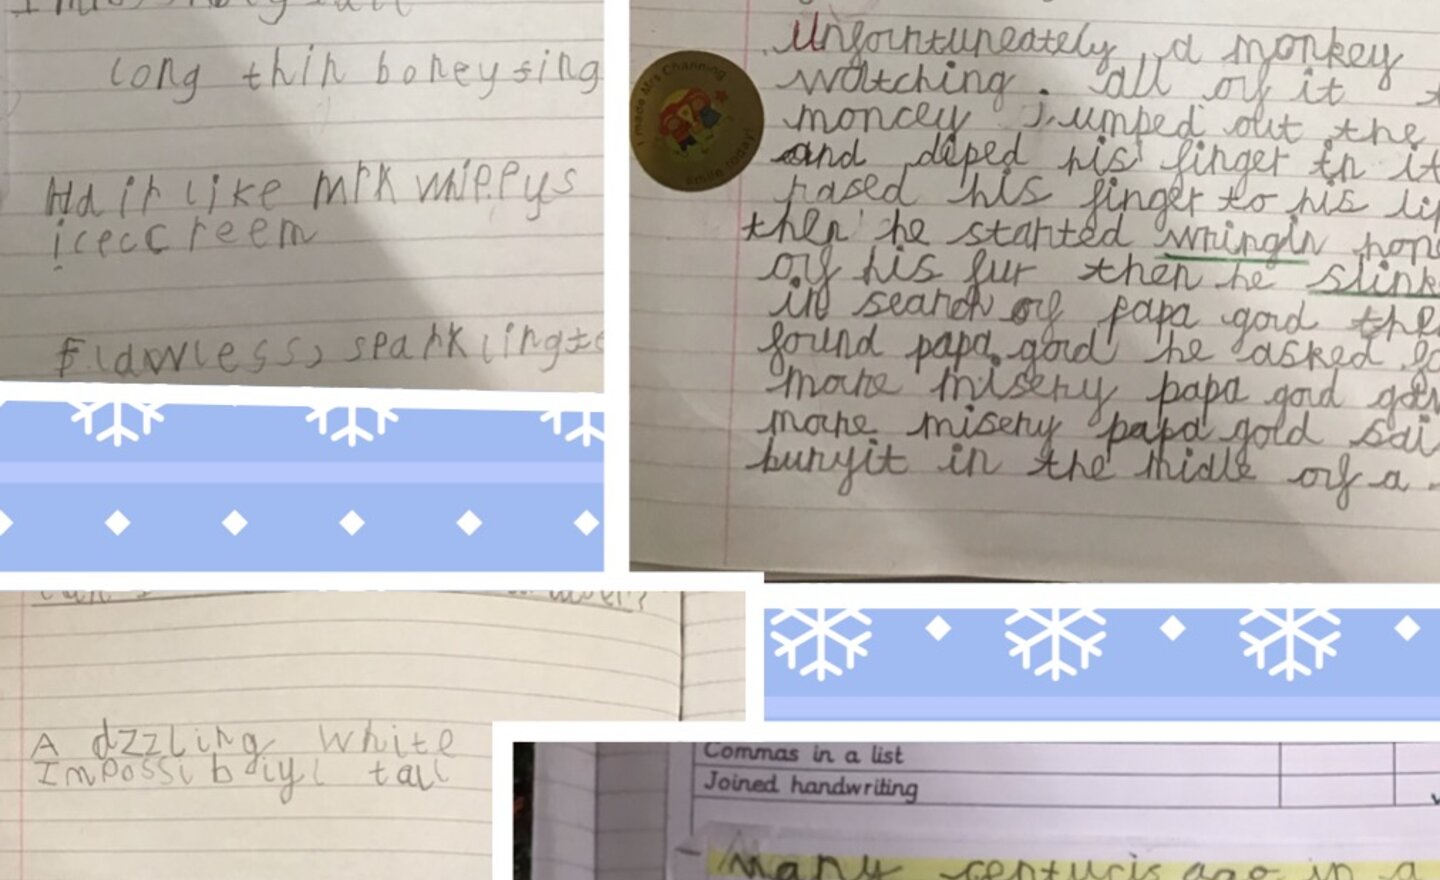 long thin boney
Hair like Mrk Whippys
icecc reem
Flawless, sparkling
Unfountuneately, a monkey
watching. all of it
moncey jumped out the
and diped his finger in it
rased his finger to his
then he started wringin
of his fur then he
in search of papa god
found papa god he asked
more misery papa god
more misery papa god
buryit in the midle of a
I made Mrs Channing smile today!
A dzzling white
Impossi biyl tall
Commas in a list
Joined handwriting
Many centuris ago in a